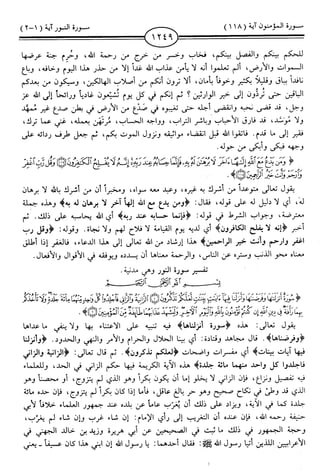 سورة المؤمنون آية (١١٨)
١٢٤٩
سورة النور آية (١-٢)
للحكم بينكم والفصل بينكم، فخاب وخسر من خرج من رحمة الله، وحُرِم جنة عرضها
السموات والأرض، ألم تعلموا أنه لا يأمن عذاب الله غداً إلا من حذر هذا اليوم وخافه، وباع
نافداً بباقٍ وقليلاً بكثير وخوفاً بأمان، ألا ترون أنكم من أصلاب الهالكين، وسيكون من بعدكم
الباقين حتى تُردُّون إلى خير الوارثين؟ ثم إنكم في كل يوم تُشيّعون غادياً ورائحاً إلى الله عزَّ
وجل، قد قضى نحبه وانقضى أجله حتى تغيبوه في صَدْع من الأرض في بطن صدع غير مُمهَّد
ولا مُوسَّد، قد فارق الأحباب وباشر التراب، وواجه الحساب، مُرتَهَن بعمله، غني عما ترك،
فقير إلى ما قدم. فاتقوا الله قبل انقضاء مواثيقه ونزول الموت بكم، ثم جعل طرف ردائه على
وجهه فبكى وأبكى من حوله.
﴿وَمَن يَدْعُ مَعَ اللَّهِ إِلَٰهًا آخَرَ لَا بُرْهَانَ لَهُ بِهِ فَإِنَّمَا حِسَابُهُ عِندَ رَبِّهِ إِنَّهُ لَا يُفْلِحُ الْكَافِرُونَ ۝ وَقُل رَّبِّ اغْفِرْ
وَارْحَمْ وَأَنتَ خَيْرُ الرَّاحِمِينَ ۝﴾.
يقول تعالى متوعداً من أشرك به غيره، وعبد معه سواه، ومخبراً أن من أشرك بالله لا برهان
له، أي لا دليل له على قوله، فقال: ﴿ومن يدع مع الله إلهاً آخر لا برهان له به﴾ وهذه جملة
معترضة، وجواب الشرط في قوله: ﴿فإنما حسابه عند ربه﴾ أي الله يحاسبه على ذلك. ثم
أخبر ﴿إنه لا يفلح الكافرون﴾ أي لديه يوم القيامة لا فلاح لهم ولا نجاة. وقوله: ﴿وقل رب
اغفر وارحم وأنت خير الراحمين﴾ هذا إرشاد من الله تعالى إلى هذا الدعاء، فالغفر إذا أطلق
معناه محو الذنب وستره عن الناس، والرحمة معناها أن يسدده ويوفقه في الأقوال والأفعال.
تفسير سورة النور وهي مدنية.
بِسْمِ اللَّهِ الرَّحْمَٰنِ الرَّحِيمِ
يقول تعالى: هذه ﴿سورة أنزلناها﴾ فيه تنبيه على الاعتناء بها ولا ينفي ما عداها
﴿وفرضناها﴾. قال مجاهد وقتادة: أي بينا الحلال والحرام والأمر والنهي والحدود. ﴿وأنزلنا
فيها آيات بينات﴾ أي مفسرات واضحات ﴿لعلكم تذكرون﴾. ثم قال تعالى: ﴿الزانية والزاني
فاجلدوا كل واحد منهما مائة جلدة﴾ هذه الآية الكريمة فيها حكم الزاني في الحد، وللعلماء
فيه تفصيل ونزاع، فإن الزاني لا يخلو إما أن يكون بكراً وهو الذي لم يتزوج، أو محصناً وهو
الذي قد وطئ في نكاح صحيح وهو حر بالغ عاقل، فأما إذا كان بكراً لم يتزوج، فإن حده مائة
جلدة كما في الآية، ويزاد على ذلك أن يُغرَّب عاماً عن بلده عند جمهور العلماء خلافاً لأبي
حنيفة رحمه الله، فإن عنده أن التغريب إلى رأي الإمام: إن شاء غرب وإن شاء لم يغرب،
وحجة الجمهور في ذلك ما ثبت في الصحيحين عن أبي هريرة وزيد بن خالد الجهني في
الأعرابيين اللذين أتيا رسول الله ﷺ: فقال أحدهما: يا رسول الله إن ابني هذا كان عسيفاً - يعني